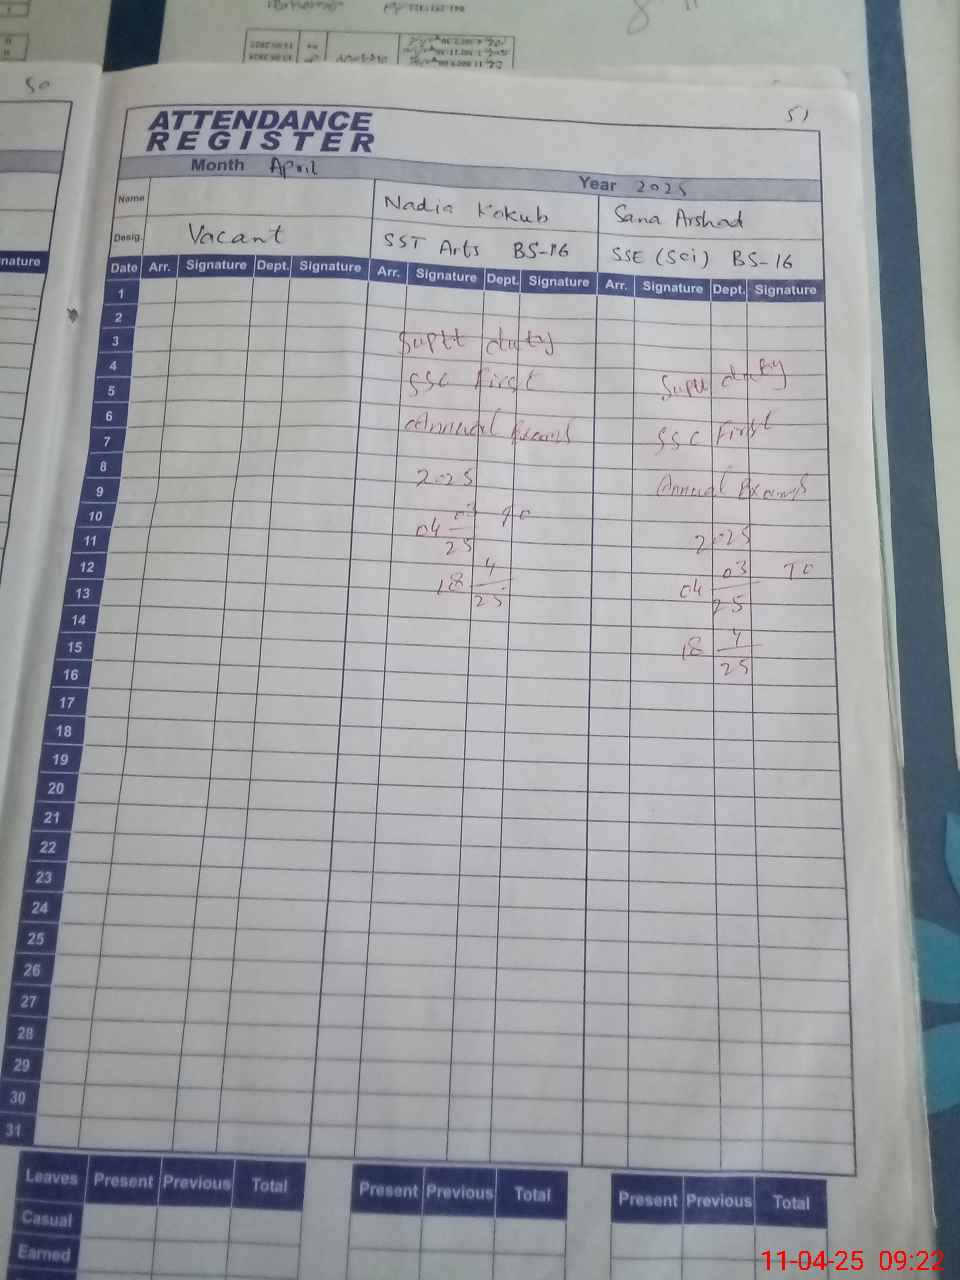 50
51
ATTENDANCE
REGISTER
Month April
Year 2025
Name Nadia Kokub Sana Arshad
Desig. Vacant SST Arts BS-16 SSE (Sci) BS-16
nature
Date Arr. Signature Dept. Signature Arr. Signature Dept. Signature Arr. Signature Dept. Signature
1
2
3 Suptt duty
4 Suptt duty
5 SSC First
6
7 Annual Exams SSC First
8
9 2025 Annual Exams
10 04 03 25 To
11 2025
12 18 4 25
13 04 03 25 To
14
15 18 4 25
16
17
18
19
20
21
22
23
24
25
26
27
28
29
30
31
Leaves Present Previous Total Present Previous Total Present Previous Total
Casual
Earned
11-04-25 09:22